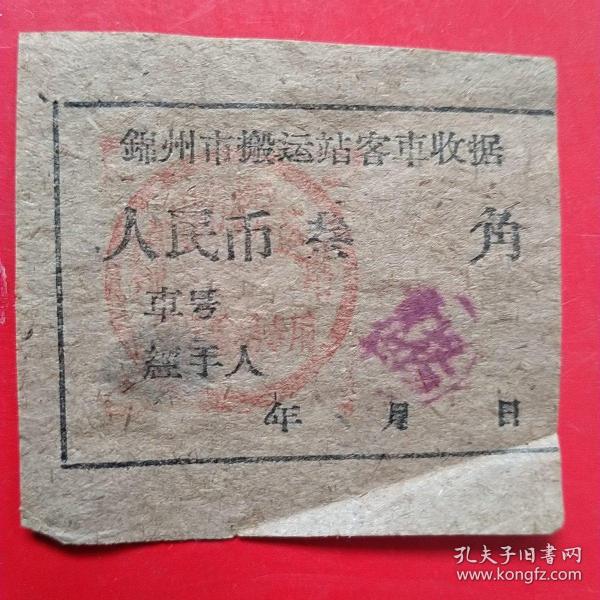 錦州市搬运站客車收据
人民币 叁 角
車号
經手人
年 月 日
孔夫子旧书网
www.kongfz.com